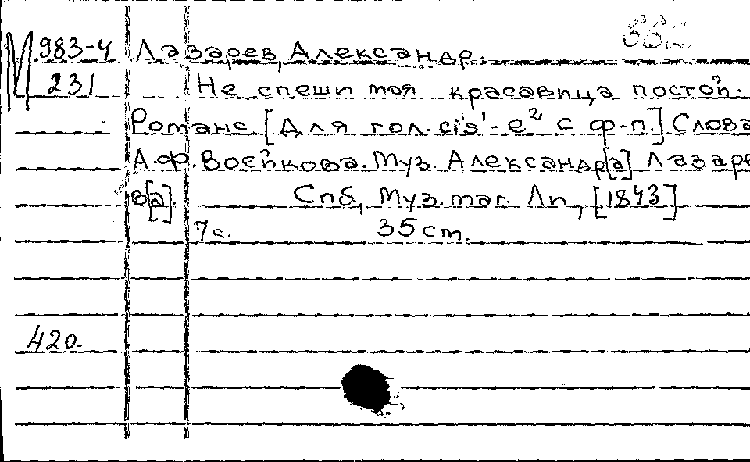 М 983-4 Лазарев, Александр.
231 Не спеши моя красавица постой.
Романс. [Для гол. cis'-e² с ф-п.] Слова
А.Ф. Воейкова. Муз. Александр[а] Лазаре
в[а]. Спб, Муз. маг. Лп, [1843]
7 с. 35 см.
420.